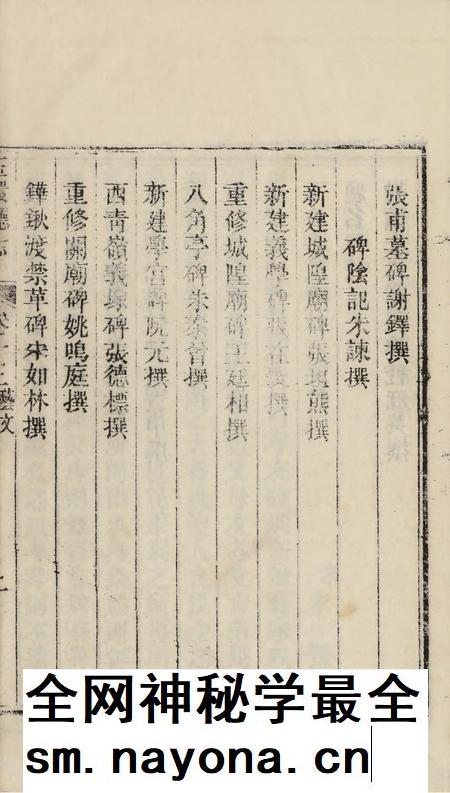 張甫墓碑謝鐸撰
碑陰記朱諫撰
新建城隍廟碑張坦熊撰
新建義學碑張在浚撰
重修城隍廟碑王廷相撰
八角亭碑朱泰曾撰
新建學宮碑阮元撰
西青嶺義塚碑張德標撰
重修關廟碑姚鳴庭撰
鏵鍬渡禁革碑宋如林撰
藝文
全网神秘学最全
sm.nayona.cn